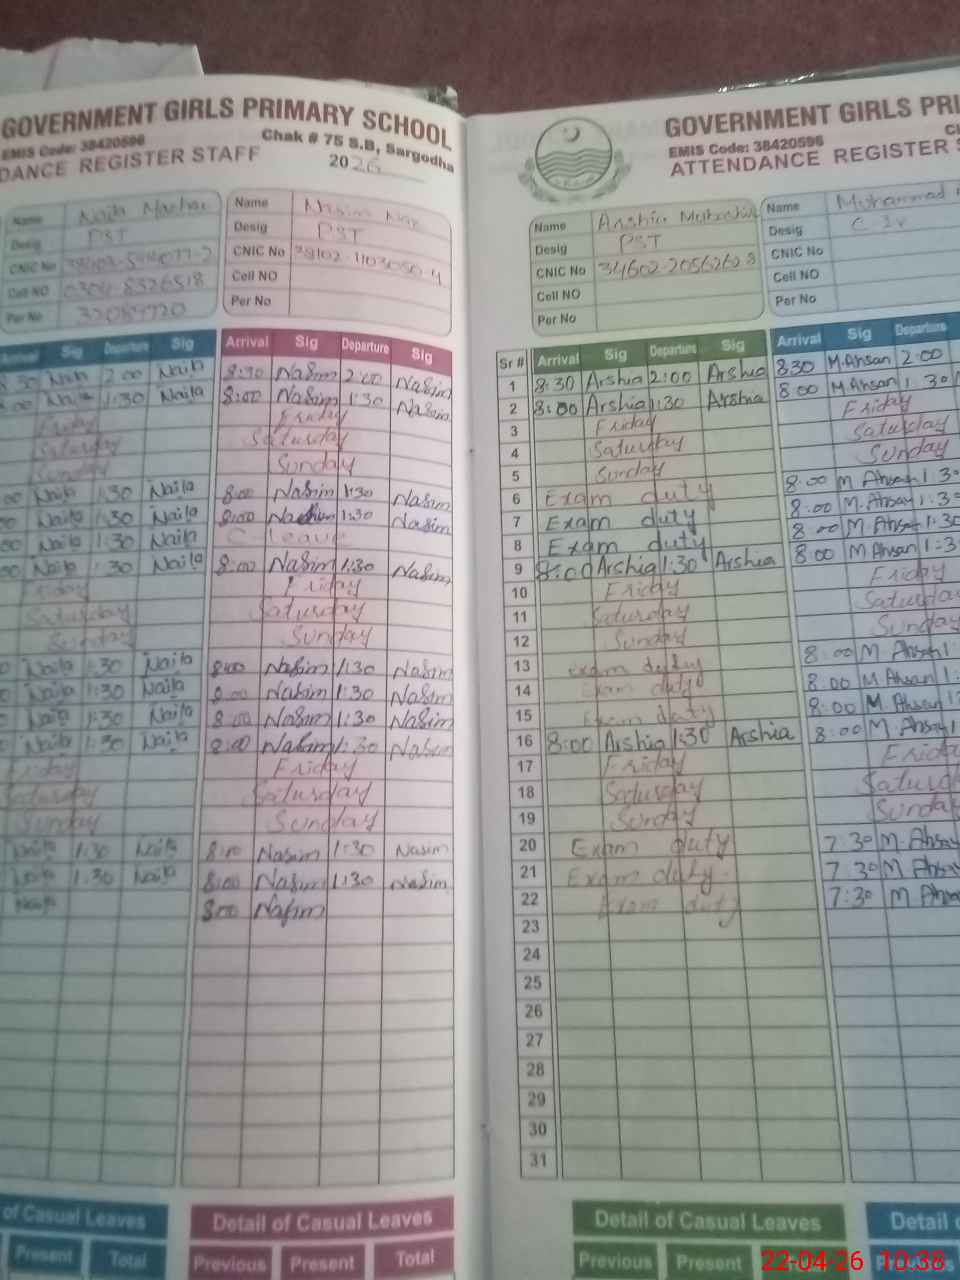 GOVERNMENT GIRLS PRIMARY SCHOOL
EMIS Code: 38420596
Chak # 75 S.B, Sargodha
DANCE REGISTER STAFF
2026
Name Naila
Desig PST
CNIC No
Cell NO 0304-8326518
Per No
Name Nasim
Desig PST
CNIC No 38102-1103050-4
Cell NO
Per No
Arrival Sig Departure Sig Arrival Sig Departure Sig
8:30 Naila 2:00 Naila 8:30 Nasim 2:00 Nasim
:00 Naila 1:30 Naila 8:00 Nasim 1:30 Nasim
Friday Friday
Saturday Saturday
Sunday Sunday
00 Naila 1:30 Naila 8:00 Nasim 1:30 Nasim
00 Naila 1:30 Naila 8:00 1:30 Nasim
00 Naila 1:30 Naila C-leave
00 Naila 1:30 Naila 8:00 Nasim 1:30 Nasim
Friday Friday
Saturday Saturday
Sunday Sunday
0 Naila 1:30 Naila 8:00 Nasim 1:30 Nasim
0 Naila 1:30 Naila 8:00 Nasim 1:30 Nasim
0 Naila 1:30 Naila 8:00 Nasim 1:30 Nasim
Naila 1:30 Naila 8:00 Nasim 1:30 Nasim
Friday Friday
Saturday Saturday
Sunday Sunday
Naila 1:30 Naila 8:00 Nasim 1:30 Nasim
Naila 1:30 Naila 8:00 Nasim 1:30 Nasim
Naila 8:00 Nasim
of Casual Leaves Detail of Casual Leaves
Present Total Previous Present Total
GOVERNMENT GIRLS PRI
EMIS Code: 38420596
ATTENDANCE REGISTER S
Name Arshia
Desig PST
CNIC No 34602-2056262-8
Cell NO
Per No
Name Muhammad
Desig C-IV
CNIC No
Cell NO
Per No
Sr # Arrival Sig Departure Sig Arrival Sig Departure
1 8:30 Arshia 2:00 Arshia 8:30 M.Ahsan 2:00
2 8:00 Arshia 1:30 Arshia 8:00 M.Ahsan 1:30
3 Friday Friday
4 Saturday Saturday
5 Sunday Sunday
6 Exam duty 8:00 M Ahsan 1:30
7 Exam duty 8:00 M.Ahsan 1:30
8 Exam duty 8:00 M.Ahsan 1:30
9 8:00 Arshia 1:30 Arshia 8:00 M Ahsan 1:3
10 Friday Friday
11 Saturday Saturday
12 Sunday Sunday
13 exam duty 8:00 M. Ahsan 1
14 Exam duty 8:00 M.Ahsan 1:
15 Exam duty 8:00 M. Ahsan 1
16 8:00 Arshia 1:30 Arshia 8:00 M. Ahsan
17 Friday Friday
18 Saturday Saturday
19 Sunday Sunday
20 Exam duty 7:30 M. Ahsan
21 Exam duty 7:30 M. Ahsan
22 Exam duty 7:30 M Ahsan
23
24
25
26
27
28
29
30
31
Detail of Casual Leaves Detail
Previous Present Total
22-04-26 10:38